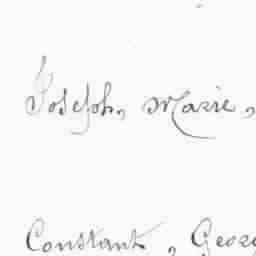 Joseph, Marie,
Constant, Georg